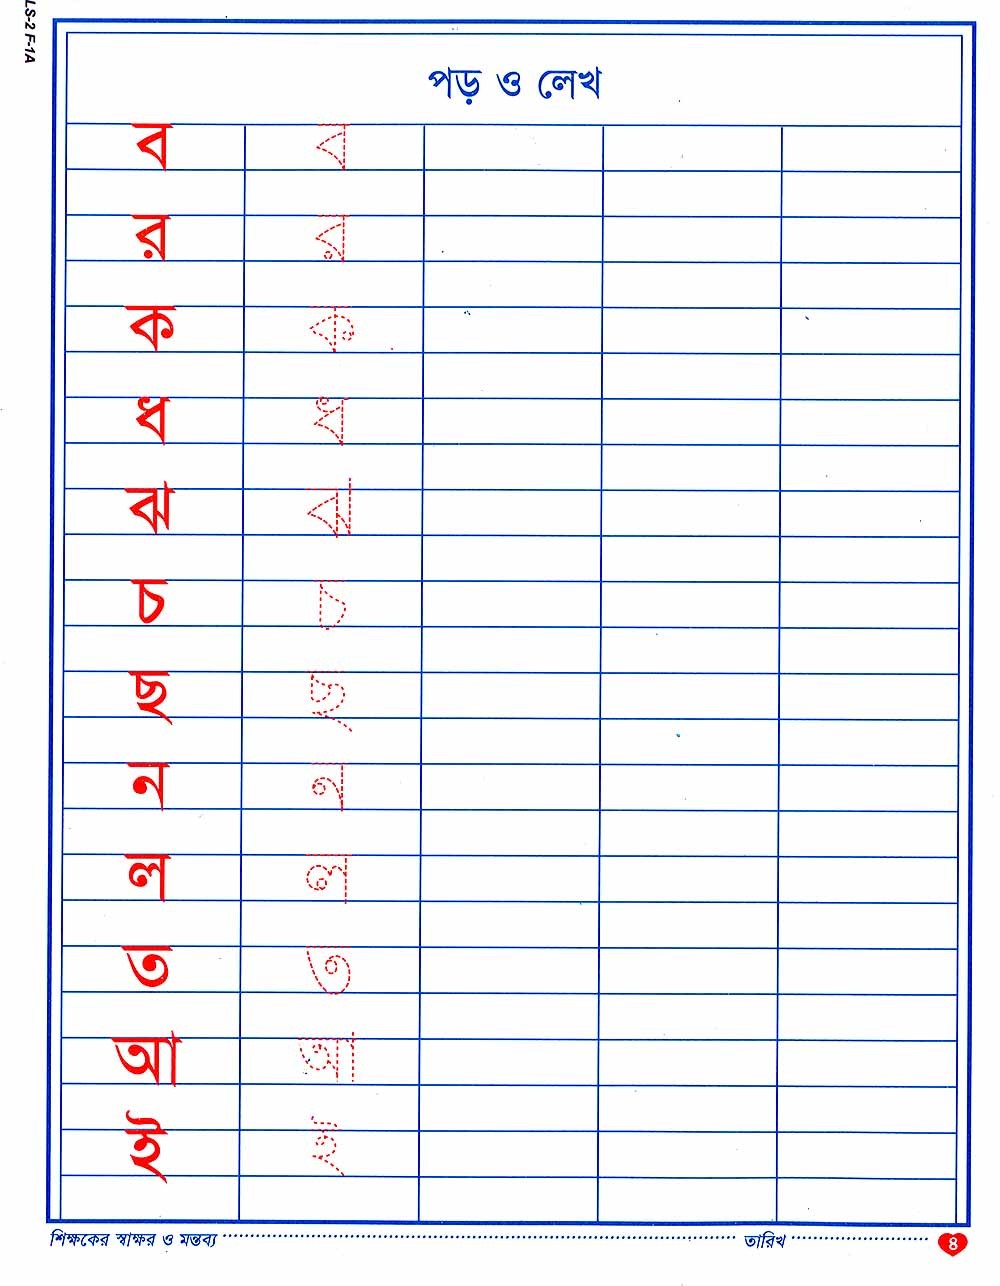 LS-2 F-1A
পড় ও লেখ
ব ব
র র
ক ক
ধ ধ
ঝ ঝ
চ চ
ছ ছ
ন ন
ল ল
ত ত
আ আ
ই ই
শিক্ষকের স্বাক্ষর ও মন্তব্য তারিখ ৪